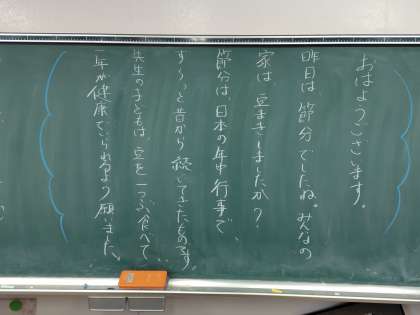 おはようございます。
昨日は、節分でしたね。みんなの
家は、豆まきしましたか？
節分は、日本の年中行事で、
ずうっと昔から続いてきたものです。
先生の子どもは、豆を一つぶ食べて、
一年が健康でいられるよう願いました。